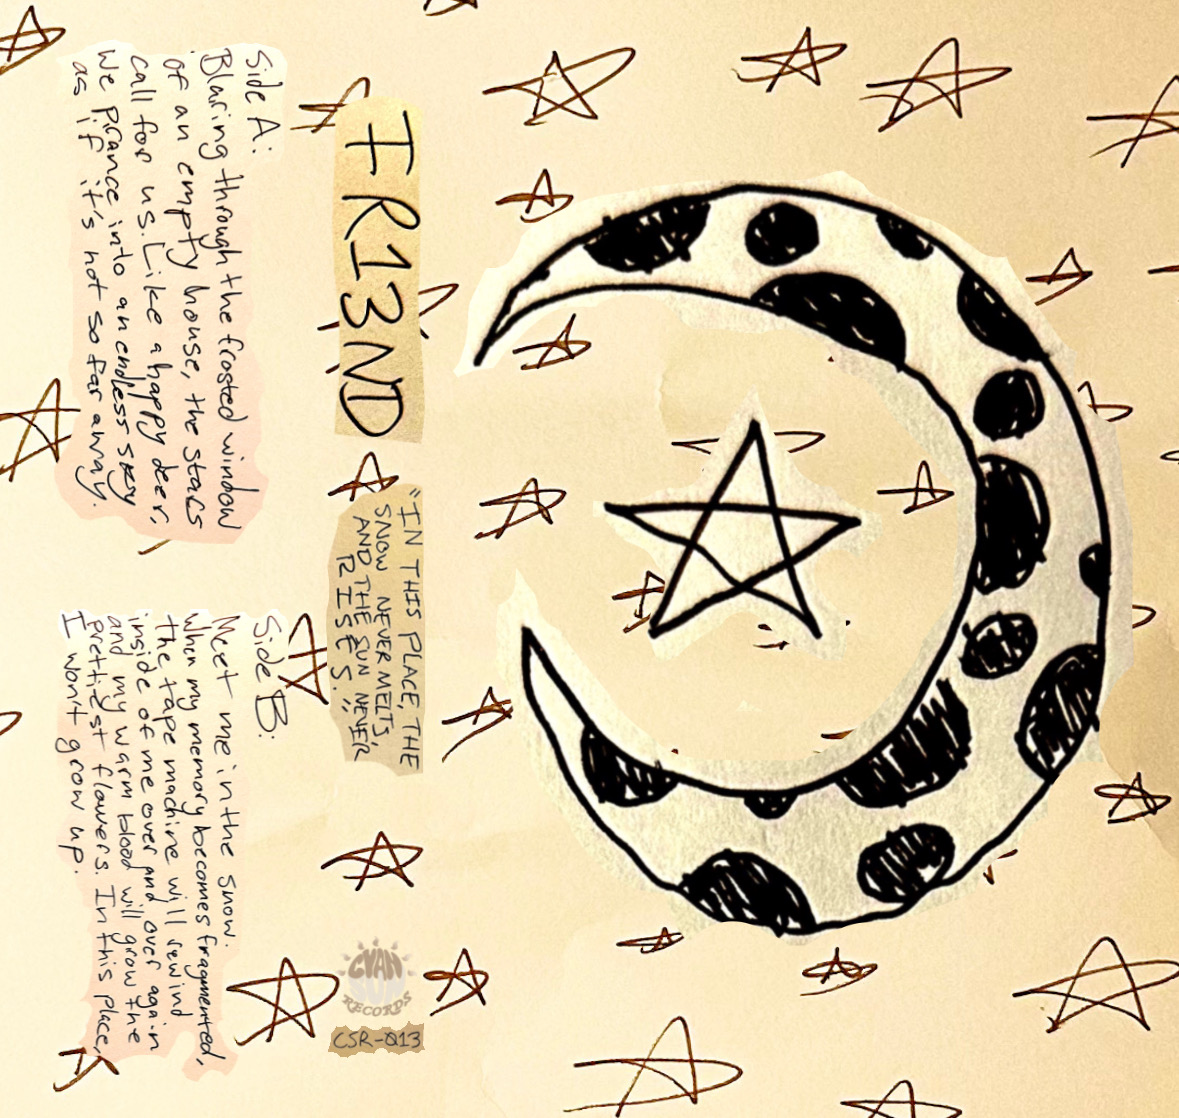 Side A:
Blaring through the frosted window
of an empty house, the stars
call for us. Like a happy deer,
We prance into an endless sky
as if it's not so far away.
FR13ND
"IN THIS PLACE, THE
SNOW NEVER MELTS,
AND THE SUN NEVER
RISES."
Side B:
Meet me in the snow.
When my memory becomes fragmented,
the tape machine will rewind
inside of me over and over again
and my warm blood will grow the
prettiest flowers. In this place,
I won't grow up.
CYAN
SUN
RECORDS
CSR-013